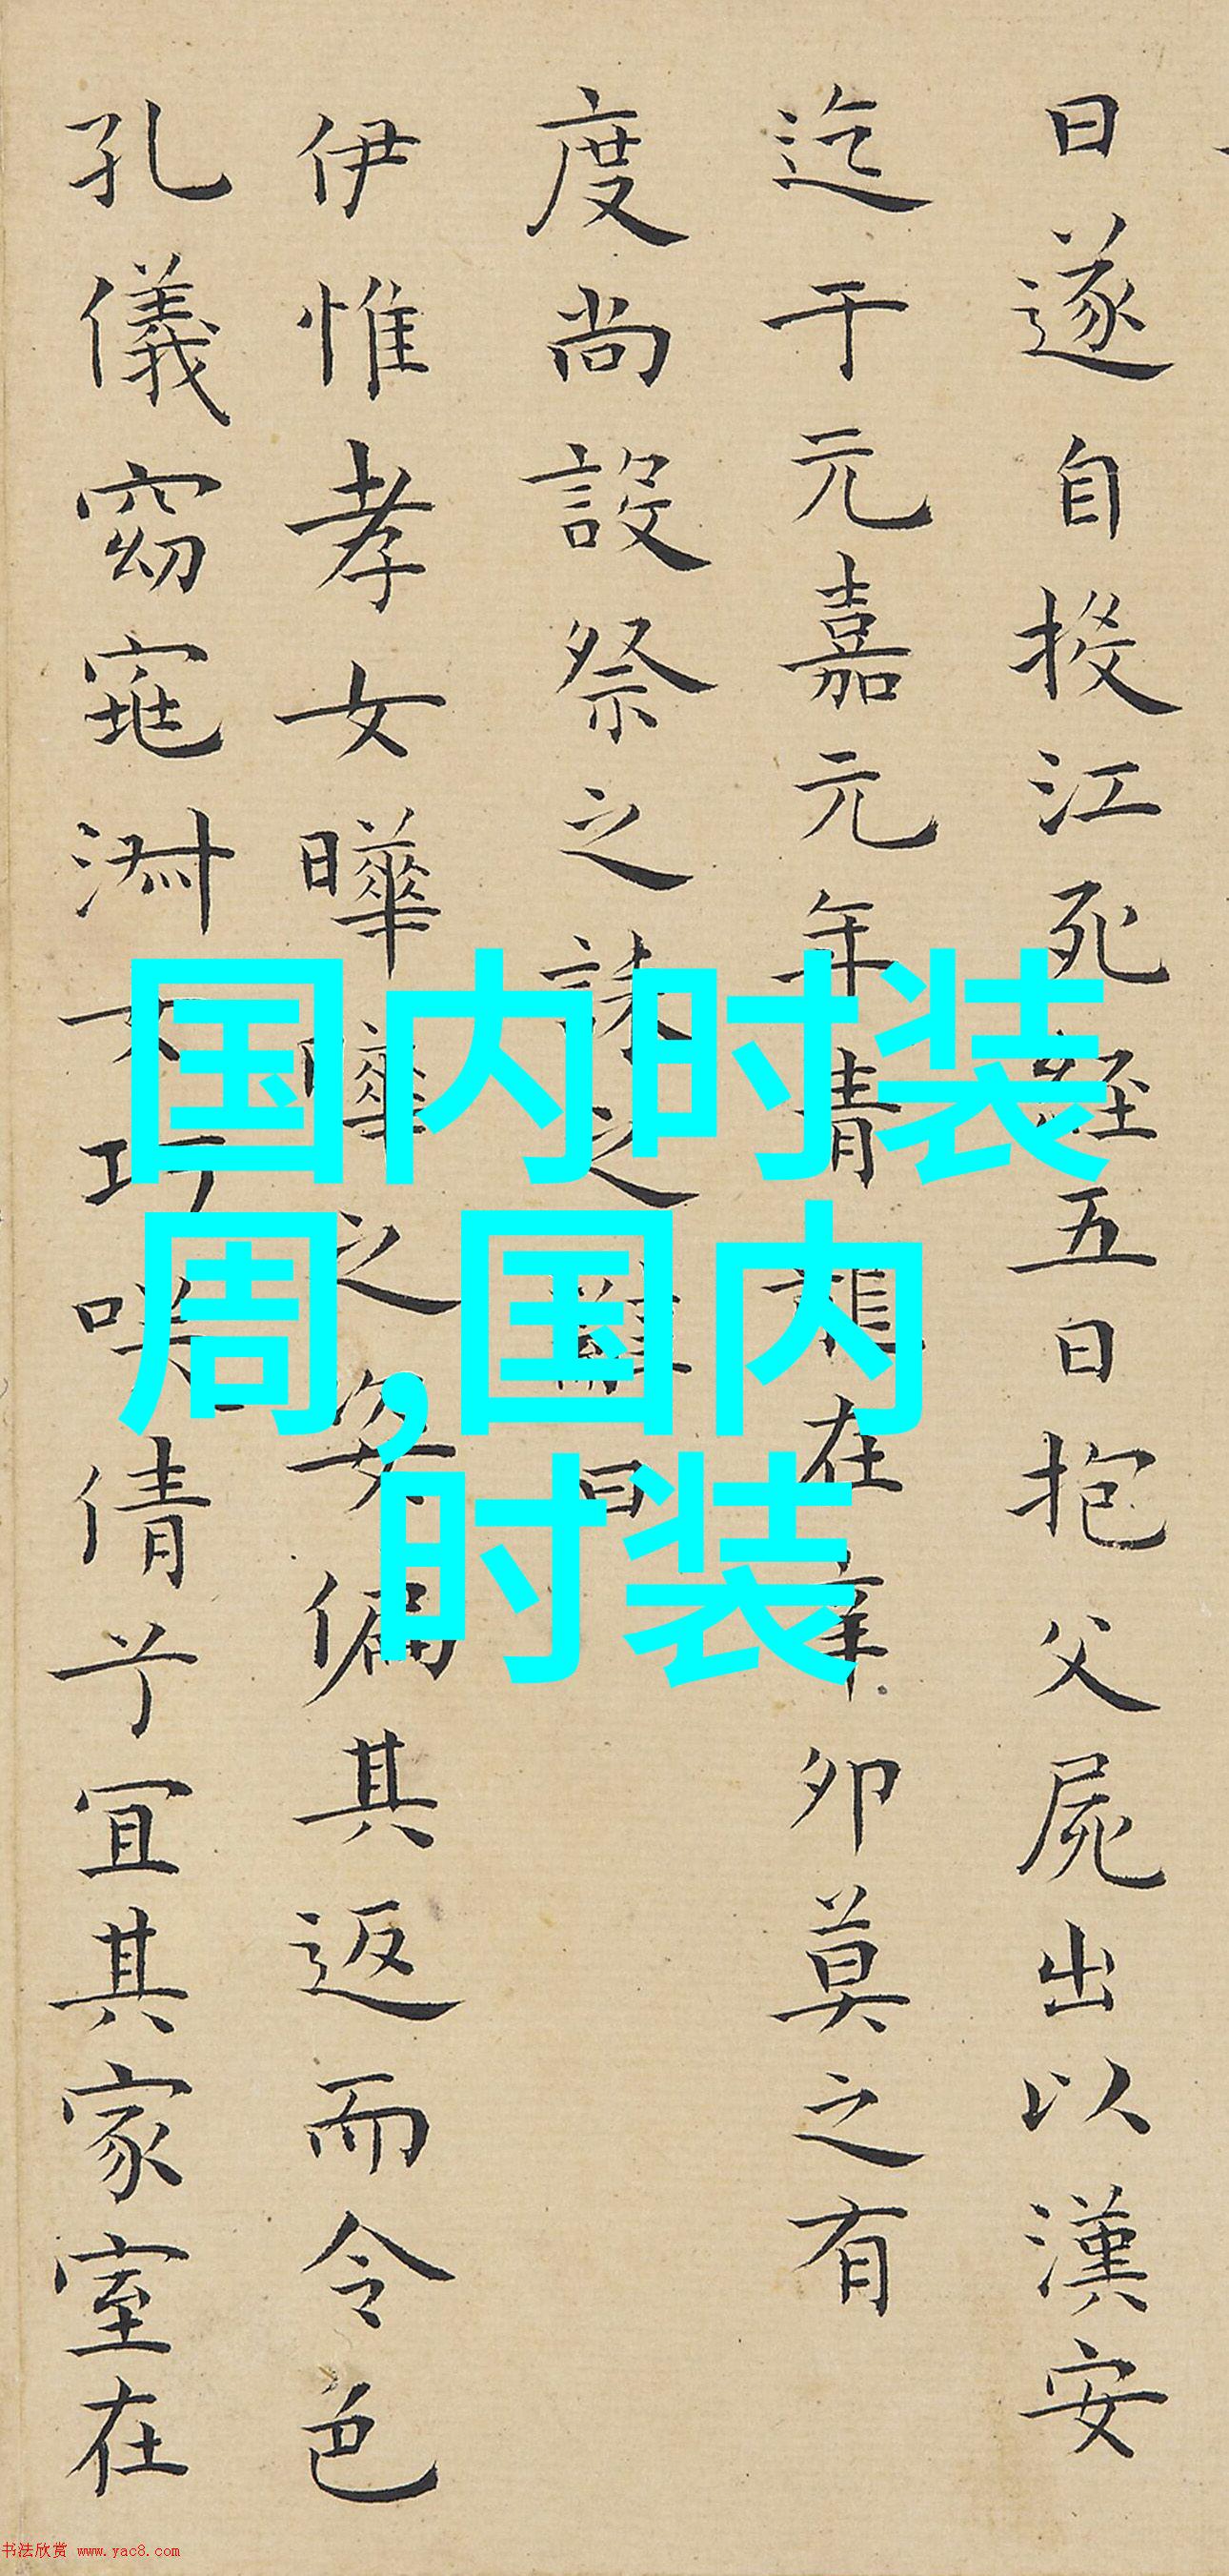 日遂自投江死經五日抱父屍出以漢安
迄于元嘉元年青龍在辛卯莫之有
度尚設祭之誄之辭曰
伊惟孝女曄曄之姿偏其返而令色
孔儀窈窕淑女巧咲倩兮宜其家室在
国内时装
周,国内
时装
书法欣赏 www.yac8.com